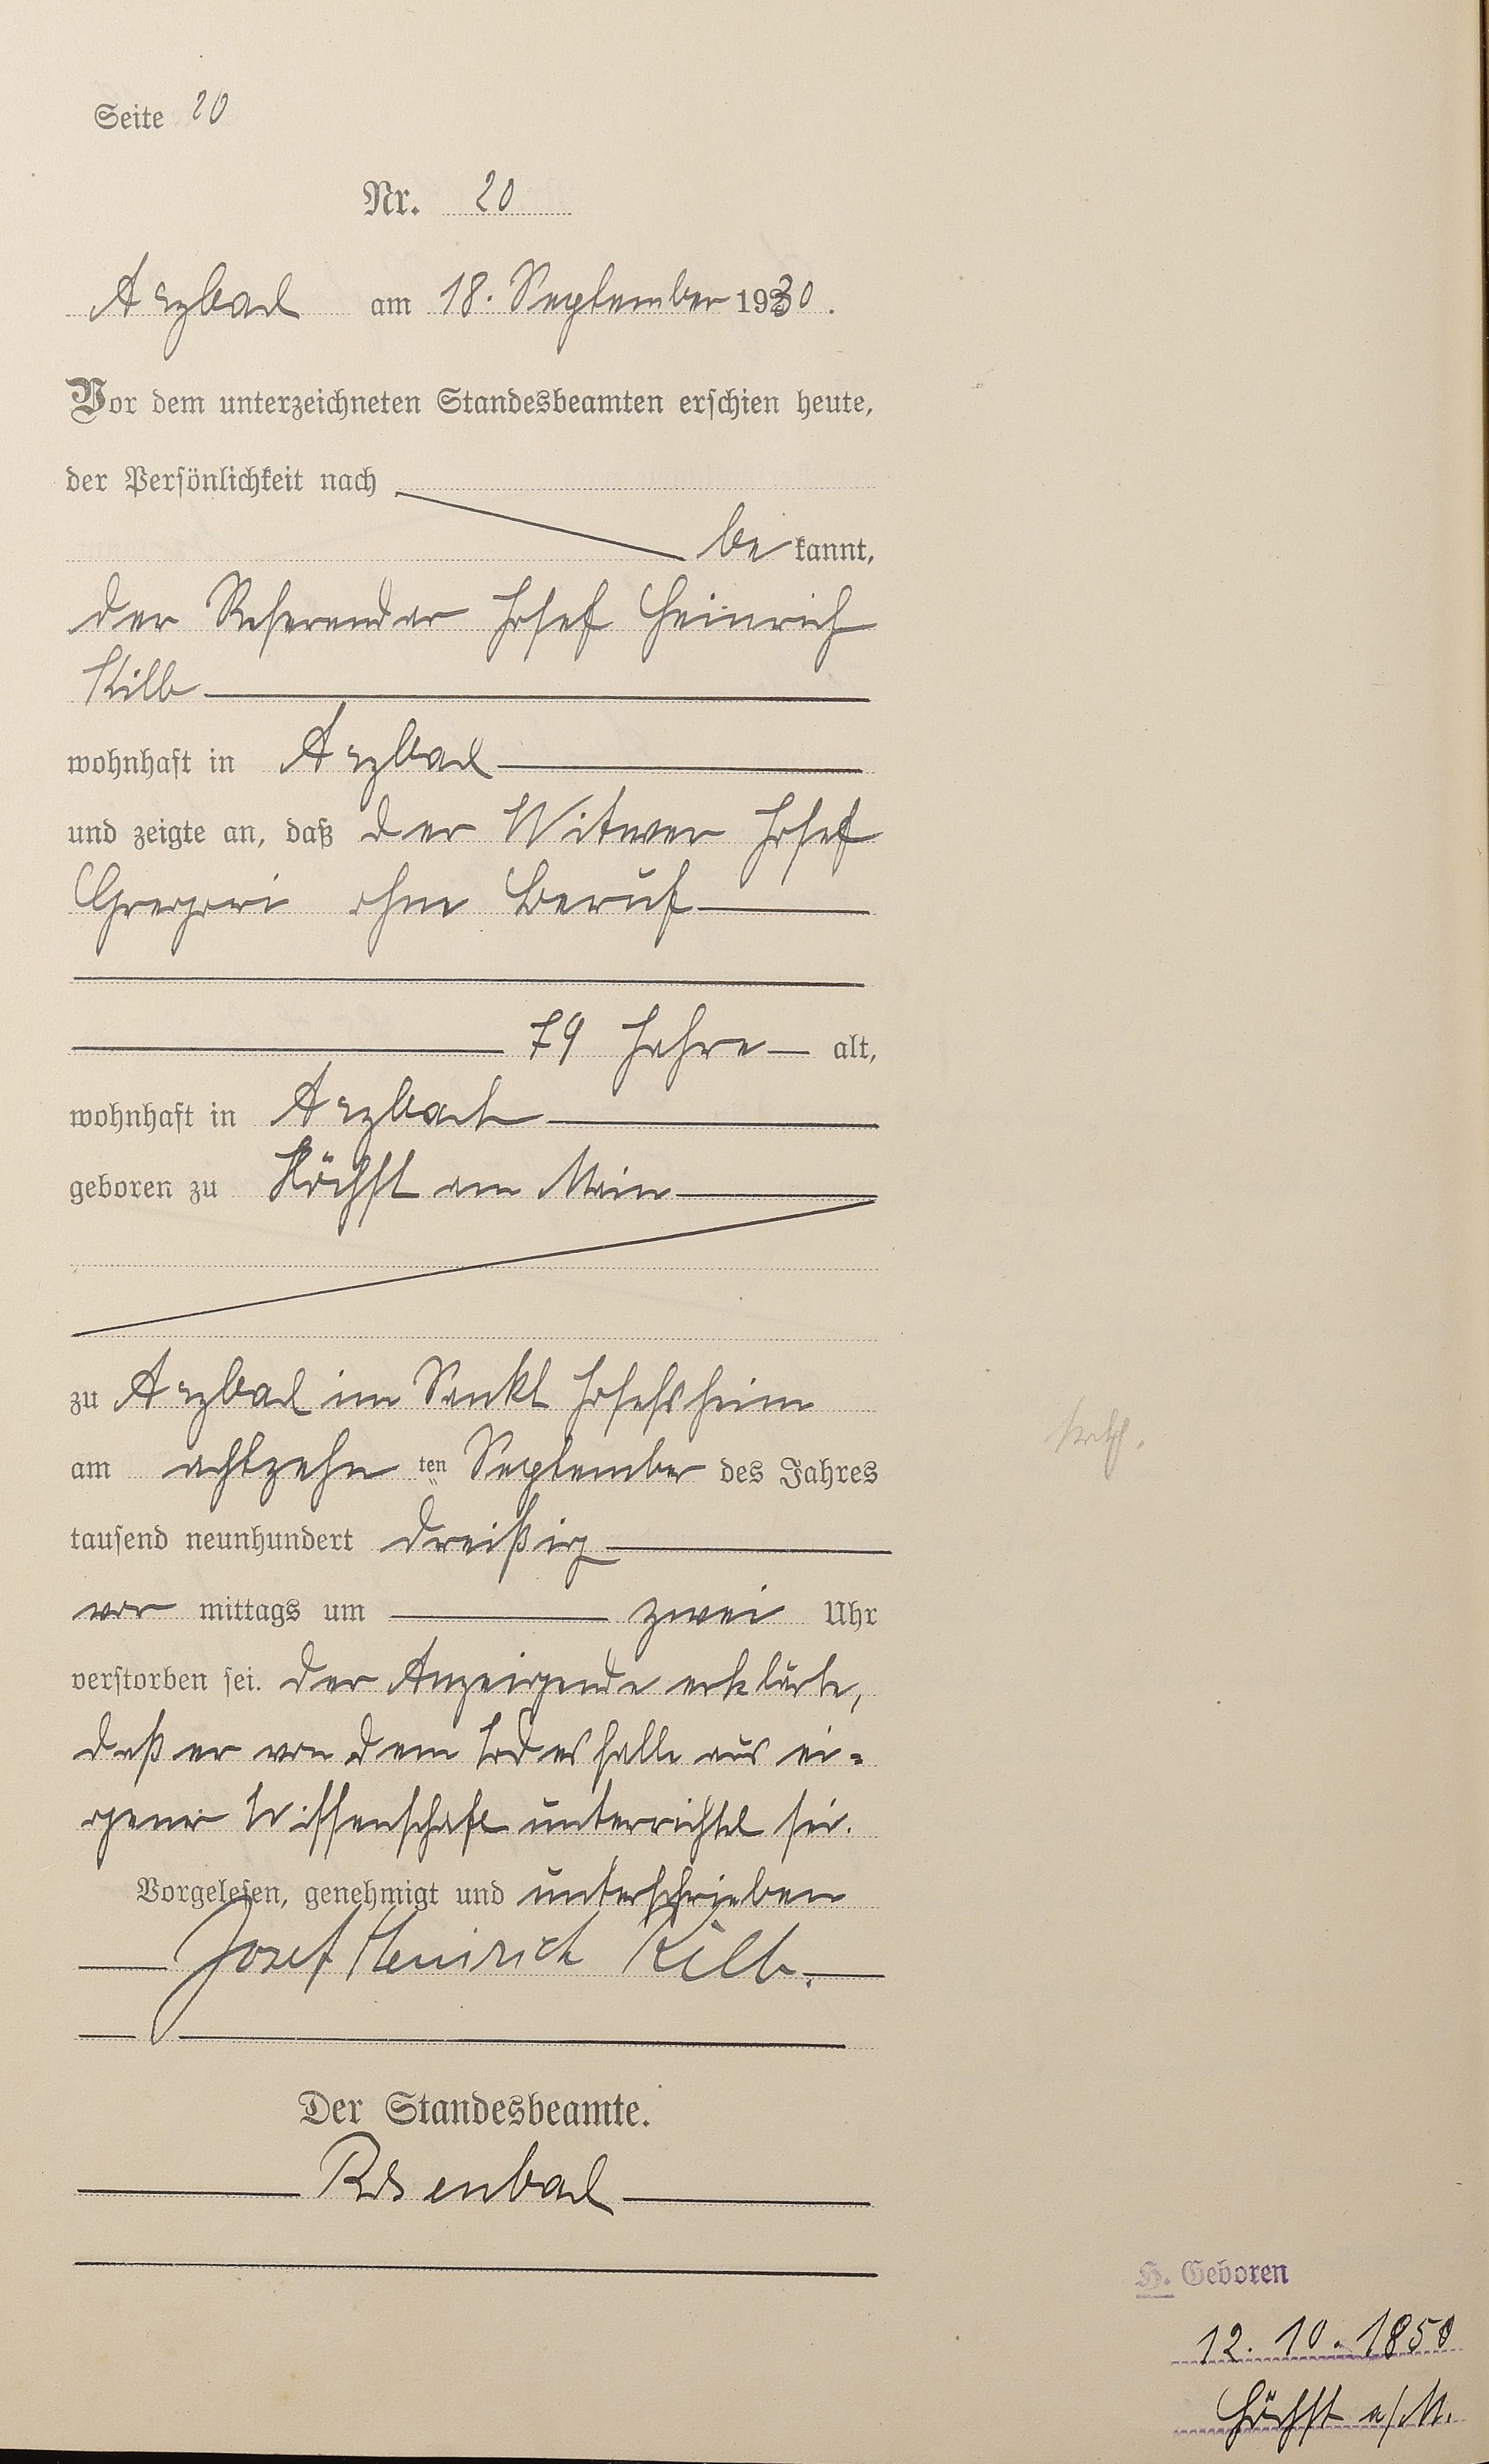 Seite 20
Nr. 20
Arzbach am 18. September 1930.
Vor dem unterzeichneten Standesbeamten erschien heute,
der Persönlichkeit nach
be kannt,
der Referendar Josef Heinrich
Kilb
wohnhaft in Arzbach
und zeigte an, daß der Witwer Josef
Gregori ohne Beruf
79 Jahre alt,
wohnhaft in Arzbach
geboren zu Höchst am Main
zu Arzbach im Sankt Josefsheim
am achtzehn ten September des Jahres
tausend neunhundert dreißig
vor mittags um zwei Uhr
verstorben sei. Der Anzeigende erklärte,
daß er von dem Todesfalle aus ei-
gener Wissenschaft unterrichtet sei.
Vorgelesen, genehmigt und unterschrieben
Josef Heinrich Kilb.
Der Standesbeamte.
Rosenbach
H. Geboren
12. 10. 1850
Höchst a/M.